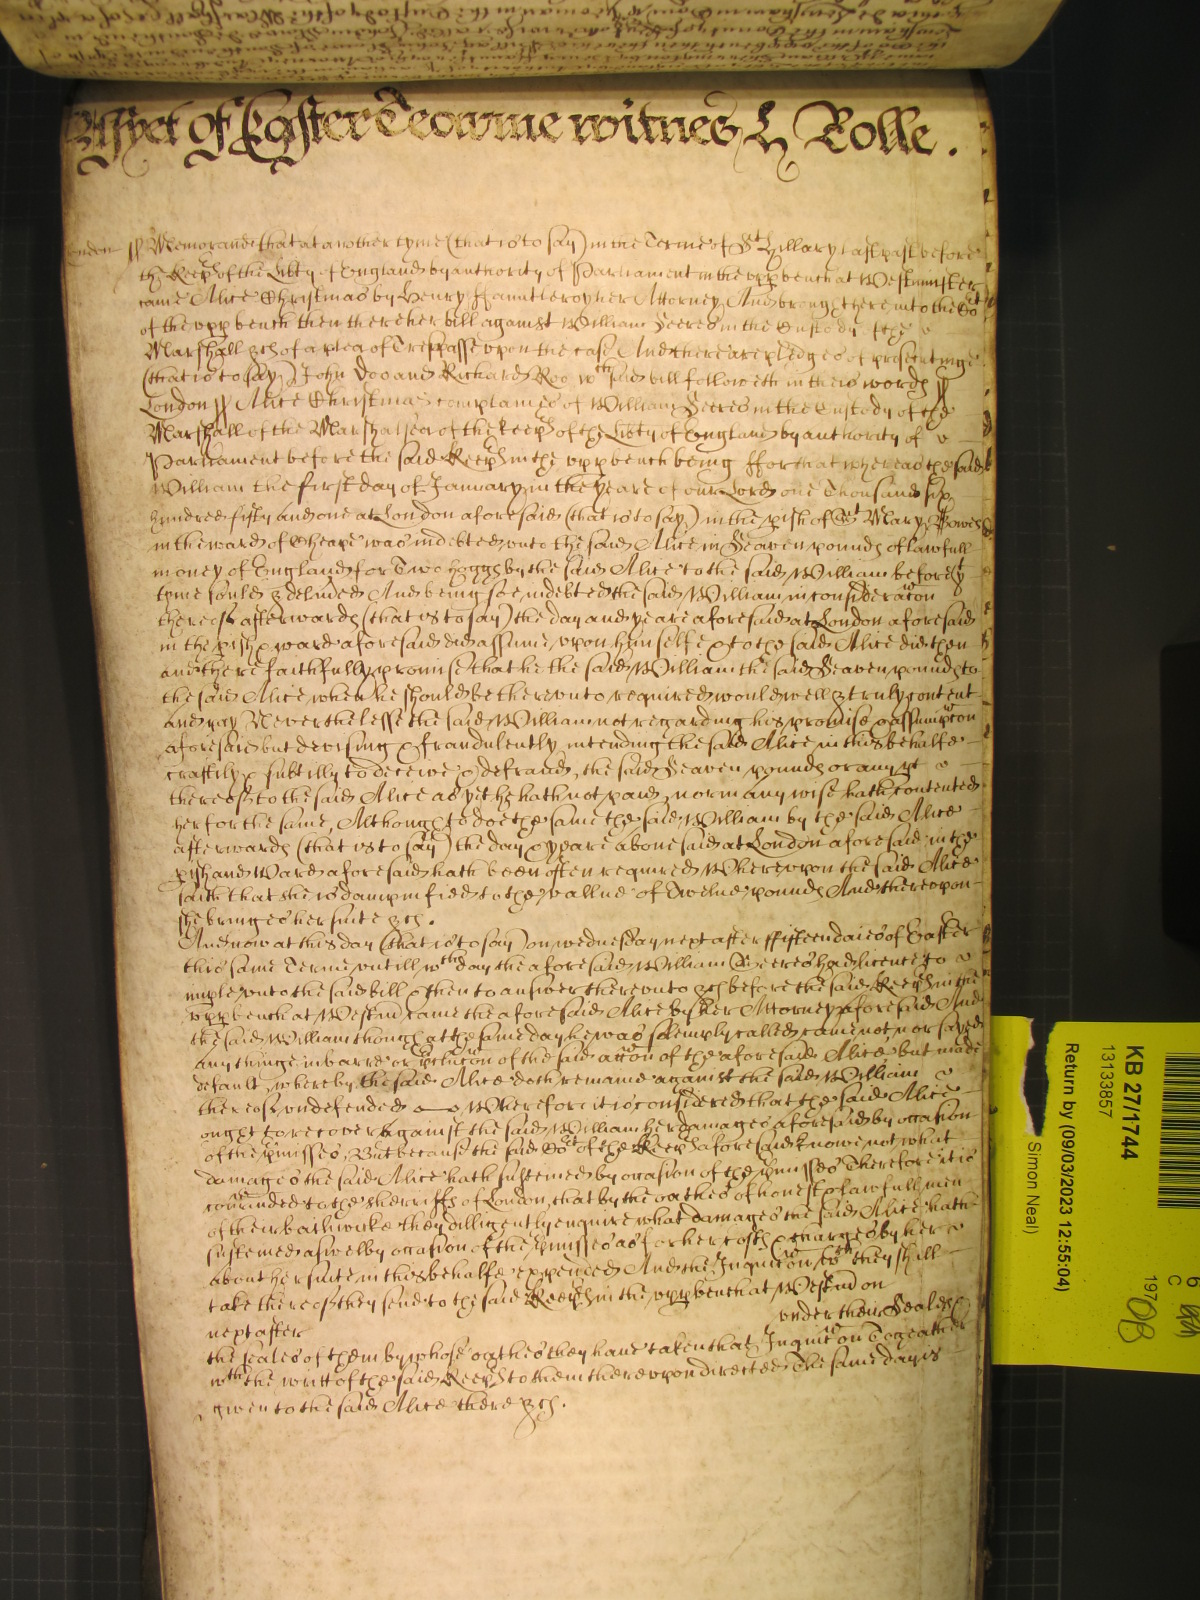 As yet of Easter Tearme witnes H Rolle .
London ss Memorand that at another tyme (that is to say) in the Terme of St Hillary last past before
the Keeps of the Libty of England by authority of Parliament in the upp bench at Westminster
came Alice Christmas by Henry ffauntleroy her Attorney And brought here into the Cot
of the upp bench then there her bill against William Seeres in the Custody of the
Marshall &ch of a plea of Trespasse upon the case And there are pledges of prosecutinge
(that is to say) John Doo and Richard Roo wch said bill followeth in theis words ss
London ss Alice Christmas complaines of William Seeres in the Custody of the
Marshall of the Marshalsea of the Keeps of the Libty of England by authority of
Parliament before the said Keeps in the upp bench being ffor that whereas the said
William the first day of January in the yeare of our Lord one Thousand six
hundred fifty and one at London aforesaid (that is to say) in the pish of St Mary Bowe
in the ward of Cheape was indebted unto the said Alice in Seaven pounds of lawfull
money of England for Two hoggs by the said Alice to the said William before yt
tyme sould & deliued And being soe indebted the said William in consideracon
thereof afterwards (that is to say) the day and yeare aforesaid at London aforesaid
in the pish & ward aforesaid did assume upon himselfe & to the said Alice did then
and there faithfully promise that he the said William the said Seaven pounds to
the said Alice when he should be thereunto required would well & truly content
and pay Neverthelesse the said William not regarding his promise & assumpcon
aforesaid but devising & fraudulently intending the said Alice in this behalfe
craftily & subtilly to deceive & defraud, the said Seaven pounds or any pt
thereof to the said Alice as yet he hath not paid, nor in any wise hath contented
her for the same, Although to doe the same the said William by the said Alice
afterwards (that is to say) the day & yeare abovesaid at London aforesaid in the
pish and Ward aforesaid hath been often required Whereupon the said Alice
saith that she is dampnified to the vallue of Twelue pounds And thereupon
she bringes her suite &ch .
And now at this day (that is to say) on wednesday next after ffifteen daies of Easter
this same Terme untill wch day the aforesaid William Seeres had licence to
imple unto the said bill & then to answer thereunto &ch before the said Keeps in the
upp bench at Westm came the aforesaid Alice by her Attorney aforesaid And
the said William though at the same day he was solemply called came not nor sayed
any thinge in barre or pclucon of the said accon of the aforesaid Alice but made
default, whereby the said Alice doth remaine against the said William
thereof undefended Wherefore it is considered that the said Alice
ought to recover against the said William her damages aforesaid by occasion
of the pmisses, But because the said Cot of the Keeps aforesaid knowe not what
damages the said Alice hath susteined by occasion of the pmisses Therefore it is
comanded to the sherriffs of London, that by the oathes of honest & lawfull men
of their bailiwicke they dilligently enquire what damages the said Alice hath
susteined aswel by occasion of the pmisses as for her costs & charges by her
about her suite in this behalfe expended And the Inquicon wch they shall
take thereof they send to the said Keeps in the upp bench at Westm on
next after under their Seales &
the seales of them by whose oathes they have taken that Inquicon Togeather
wth the writt of the said Keeps to them thereupon directed The same day is
given to the said Alice there &ch .
KB 27/1744
13133857
Return by (09/03/2023 12:55:04)
Simon Neal)